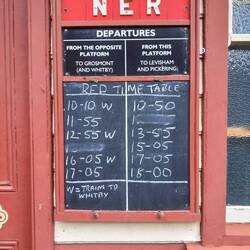 NER
DEPARTURES
FROM THE OPPOSITE PLATFORM
TO GROSMONT (AND WHITBY)
FROM THIS PLATFORM
TO LEVISHAM AND PICKERING
RED TIME TABLE
10-10 W 10-50
11-55
12-55 W 13-55
15-05
16-05 W 17-05
17-05 18-00
W = TRAINS TO WHITBY